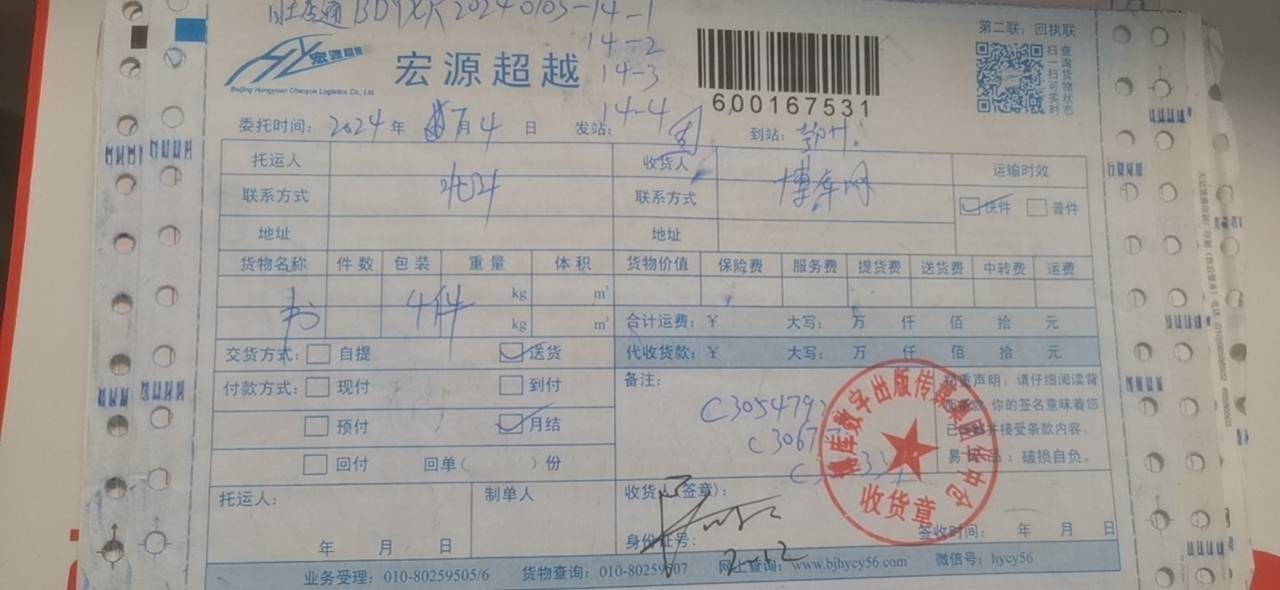 BDYXK20240103-14-1
14-2
14-3
14-4
第二联：回执联
宏源超越
Beijing Hongyuan Chaoyue Logistics Co., Ltd.
宏源超越
600167531
扫一扫可实时查询货物状态
委托时间：2024年 月4日 发站： 到站：鄂州
托运人 收货人 运输时效
联系方式 联系方式 博库网
快件 普件
地址 地址
货物名称 件数 包装 重量 体积 货物价值 保险费 服务费 提货费 送货费 中转费 运费
kg m³
书 4件 kg m³ 合计运费：¥ 大写： 万 仟 佰 拾 元
交货方式： 自提 送货 代收货款：¥ 大写： 万 仟 佰 拾 元
付款方式： 现付 到付 备注：
预付 月结
回付 回单（ ）份
C305479
C3067
声明：请仔细阅读背
你的签名意味着您
并接受条款内容。
：破损自负。
博库数字出版传媒集团 华中仓
收货章
托运人： 制单人 收货 （签章）：
年 月 日 身份证号： 签收时间： 年 月 日
业务受理：010-80259505/6 货物查询：010-80259 07 网上查询：www.bjhycy56.com 微信号：hycy56